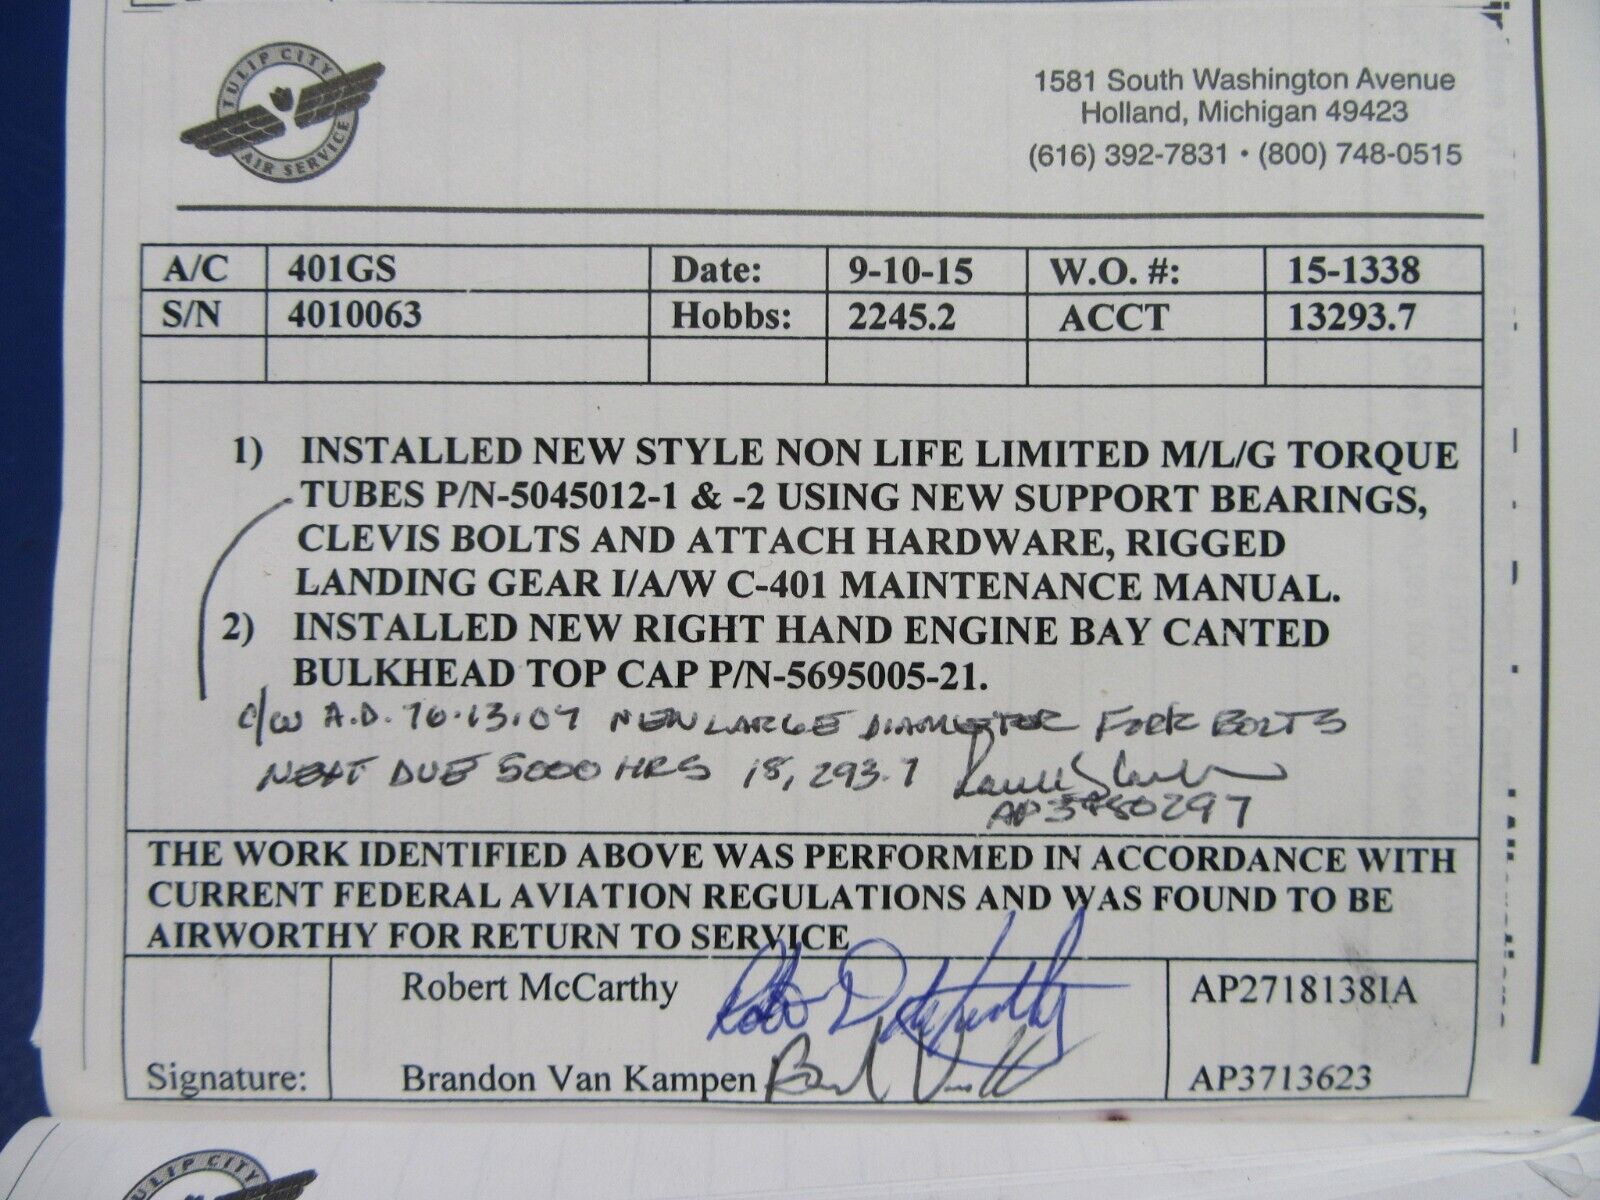 TULIP CITY
AIR SERVICE
1581 South Washington Avenue
Holland, Michigan 49423
(616) 392-7831 • (800) 748-0515
A/C 401GS Date: 9-10-15 W.O. #: 15-1338
S/N 4010063 Hobbs: 2245.2 ACCT 13293.7
1) INSTALLED NEW STYLE NON LIFE LIMITED M/L/G TORQUE
TUBES P/N-5045012-1 & -2 USING NEW SUPPORT BEARINGS,
CLEVIS BOLTS AND ATTACH HARDWARE, RIGGED
LANDING GEAR I/A/W C-401 MAINTENANCE MANUAL.
2) INSTALLED NEW RIGHT HAND ENGINE BAY CANTED
BULKHEAD TOP CAP P/N-5695005-21.
C/W A.D. 76.13.07 NEW LARGE DIAMETER FORK BOLTS
NEXT DUE 5000 HRS 18,293.7
THE WORK IDENTIFIED ABOVE WAS PERFORMED IN ACCORDANCE WITH
CURRENT FEDERAL AVIATION REGULATIONS AND WAS FOUND TO BE
AIRWORTHY FOR RETURN TO SERVICE
Robert McCarthy AP2718138IA
Signature: Brandon Van Kampen AP3713623
TULIP CITY